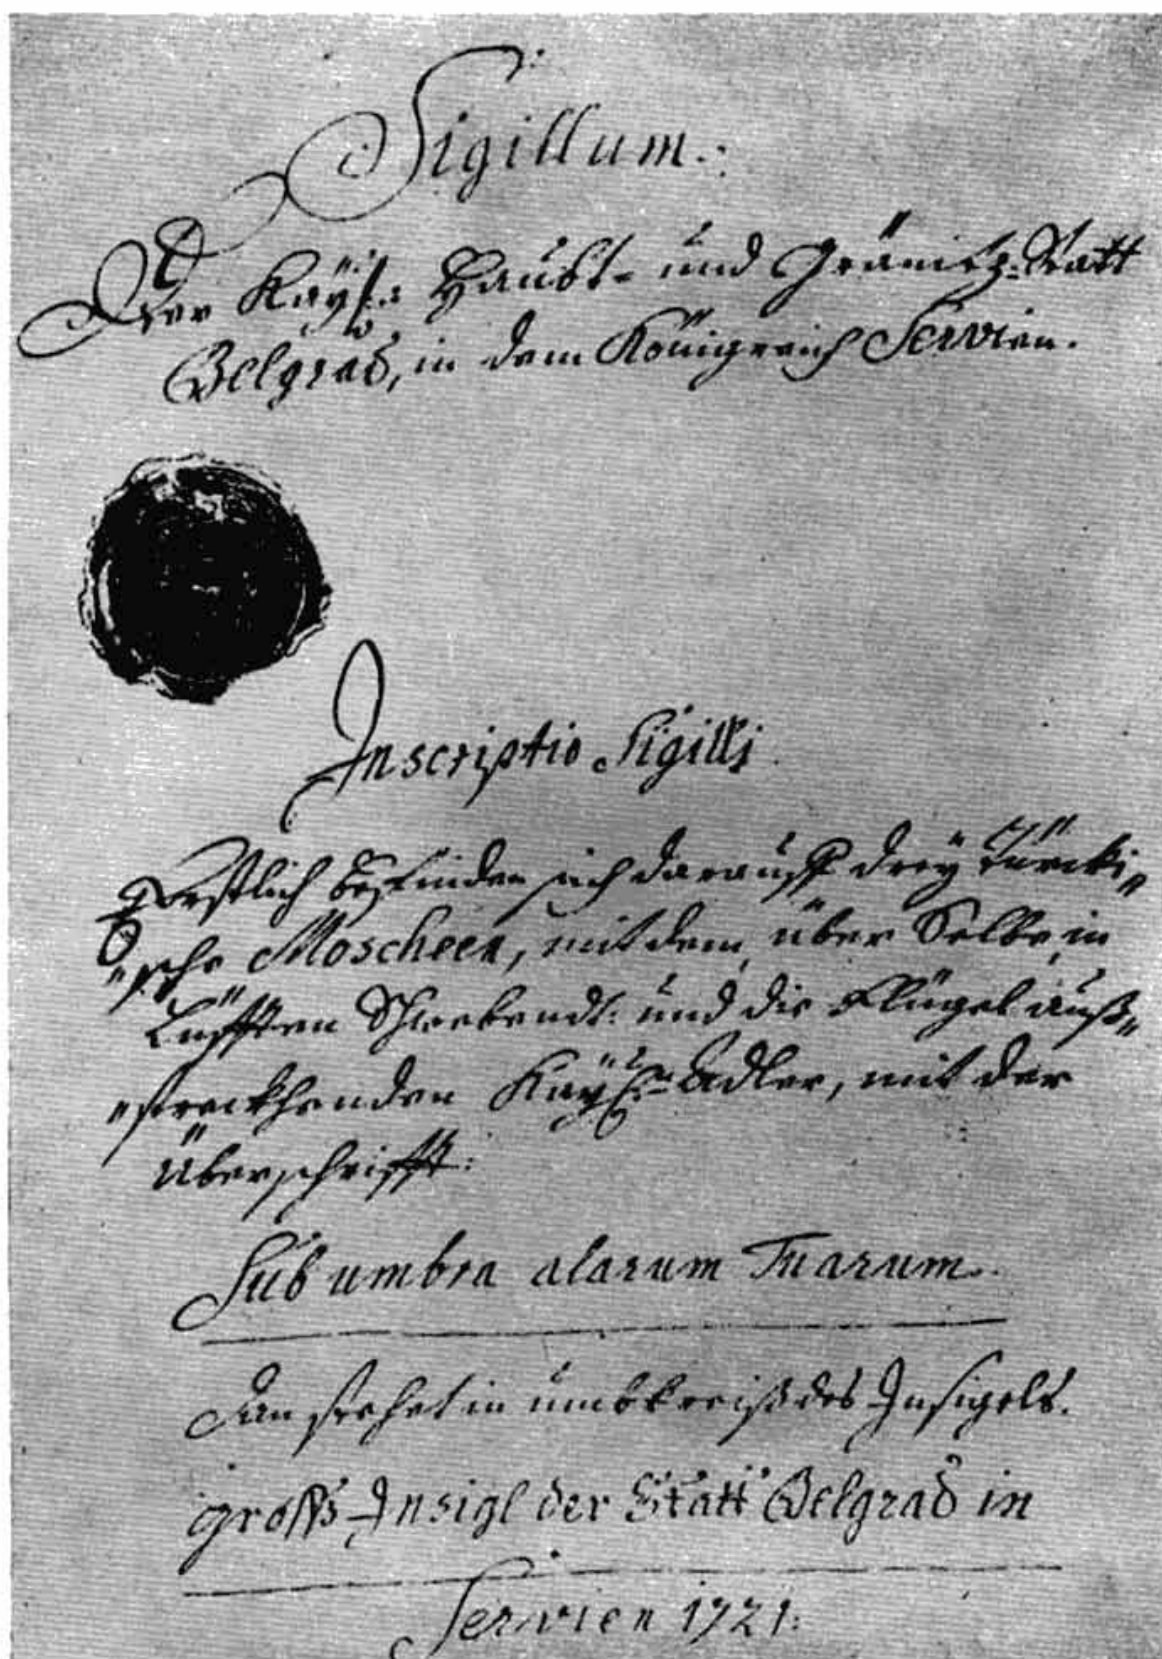 Sigillum.
Der Kayß. Haubt- und Gränitz-Statt
Belgrad, in dem Königreich Servien.
Inscriptio Sigilli
Erstlich befinden sich darauff drey Türcki„
„sche Moscheen, mit dem über Selbe, in
Lüfften Schwebendt: und die Flügel auß„
„streckhenden Kayß. Adler, mit der
Überschrifft:
Sub umbra alarum Tuarum.
Dan stehet in umbkreiß des Insigels.
gross Insigl der Statt Belgrad in
Servien 1721: